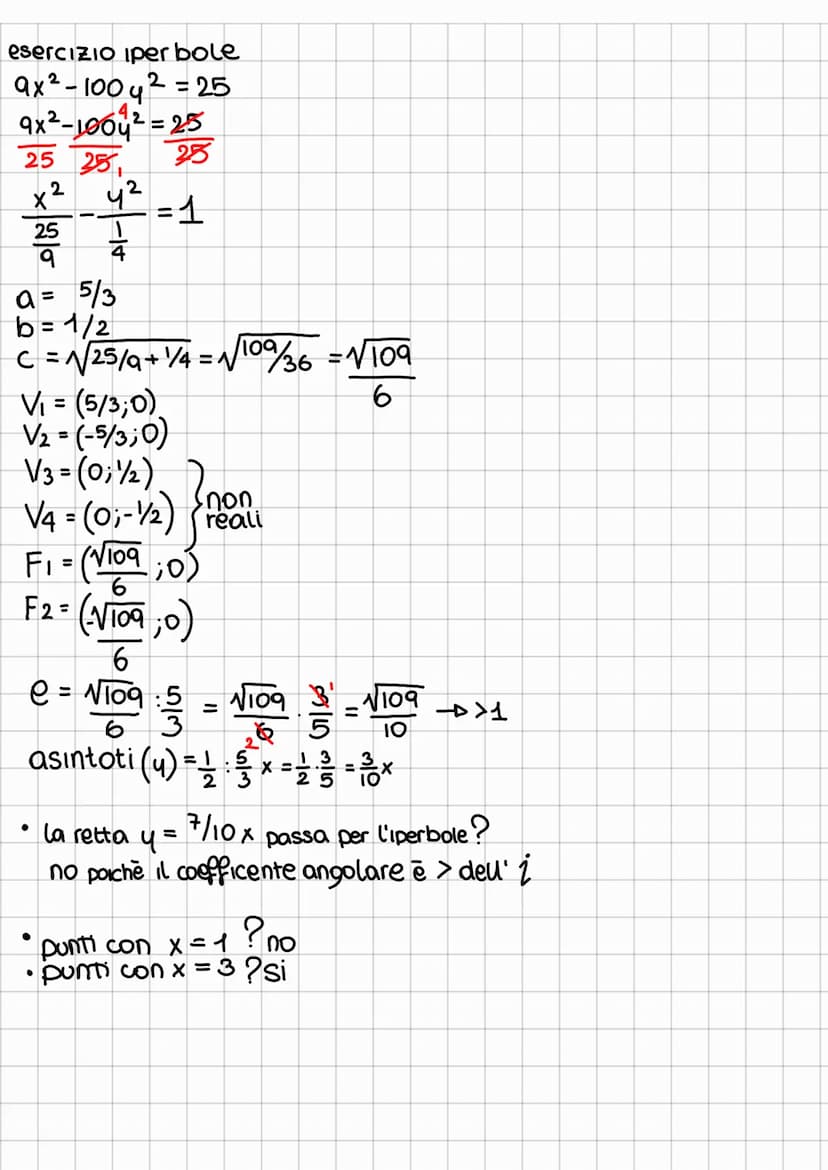 esercizio iperbole
9x² - 100y² = 25
9x²/25 - 100y²/25 = 25/25 4 1
x²/(25/9) - y²/(1/4) = 1
a = 5/3
b = 1/2
c = √(25/9 + 1/4) = √(109/36) = √109/6
V1 = (5/3;0)
V2 = (-5/3;0)
V3 = (0;1/2)
V4 = (0;-1/2) } non reali
F1 = (√109/6 ;0)
F2 = (-√109/6 ;0)
e = √109/6 : 5/3 = √109/6 · 3/5 = √109/10 → >1 2 1
asintoti (y) = 1/2 : 5/3 x = 1/2 · 3/5 = 3/10 x
• la retta y = 7/10 x passa per l'iperbole?
no poichè il coefficente angolare è > dell' i
• punti con x = 1 ? no
• punti con x = 3 ? si